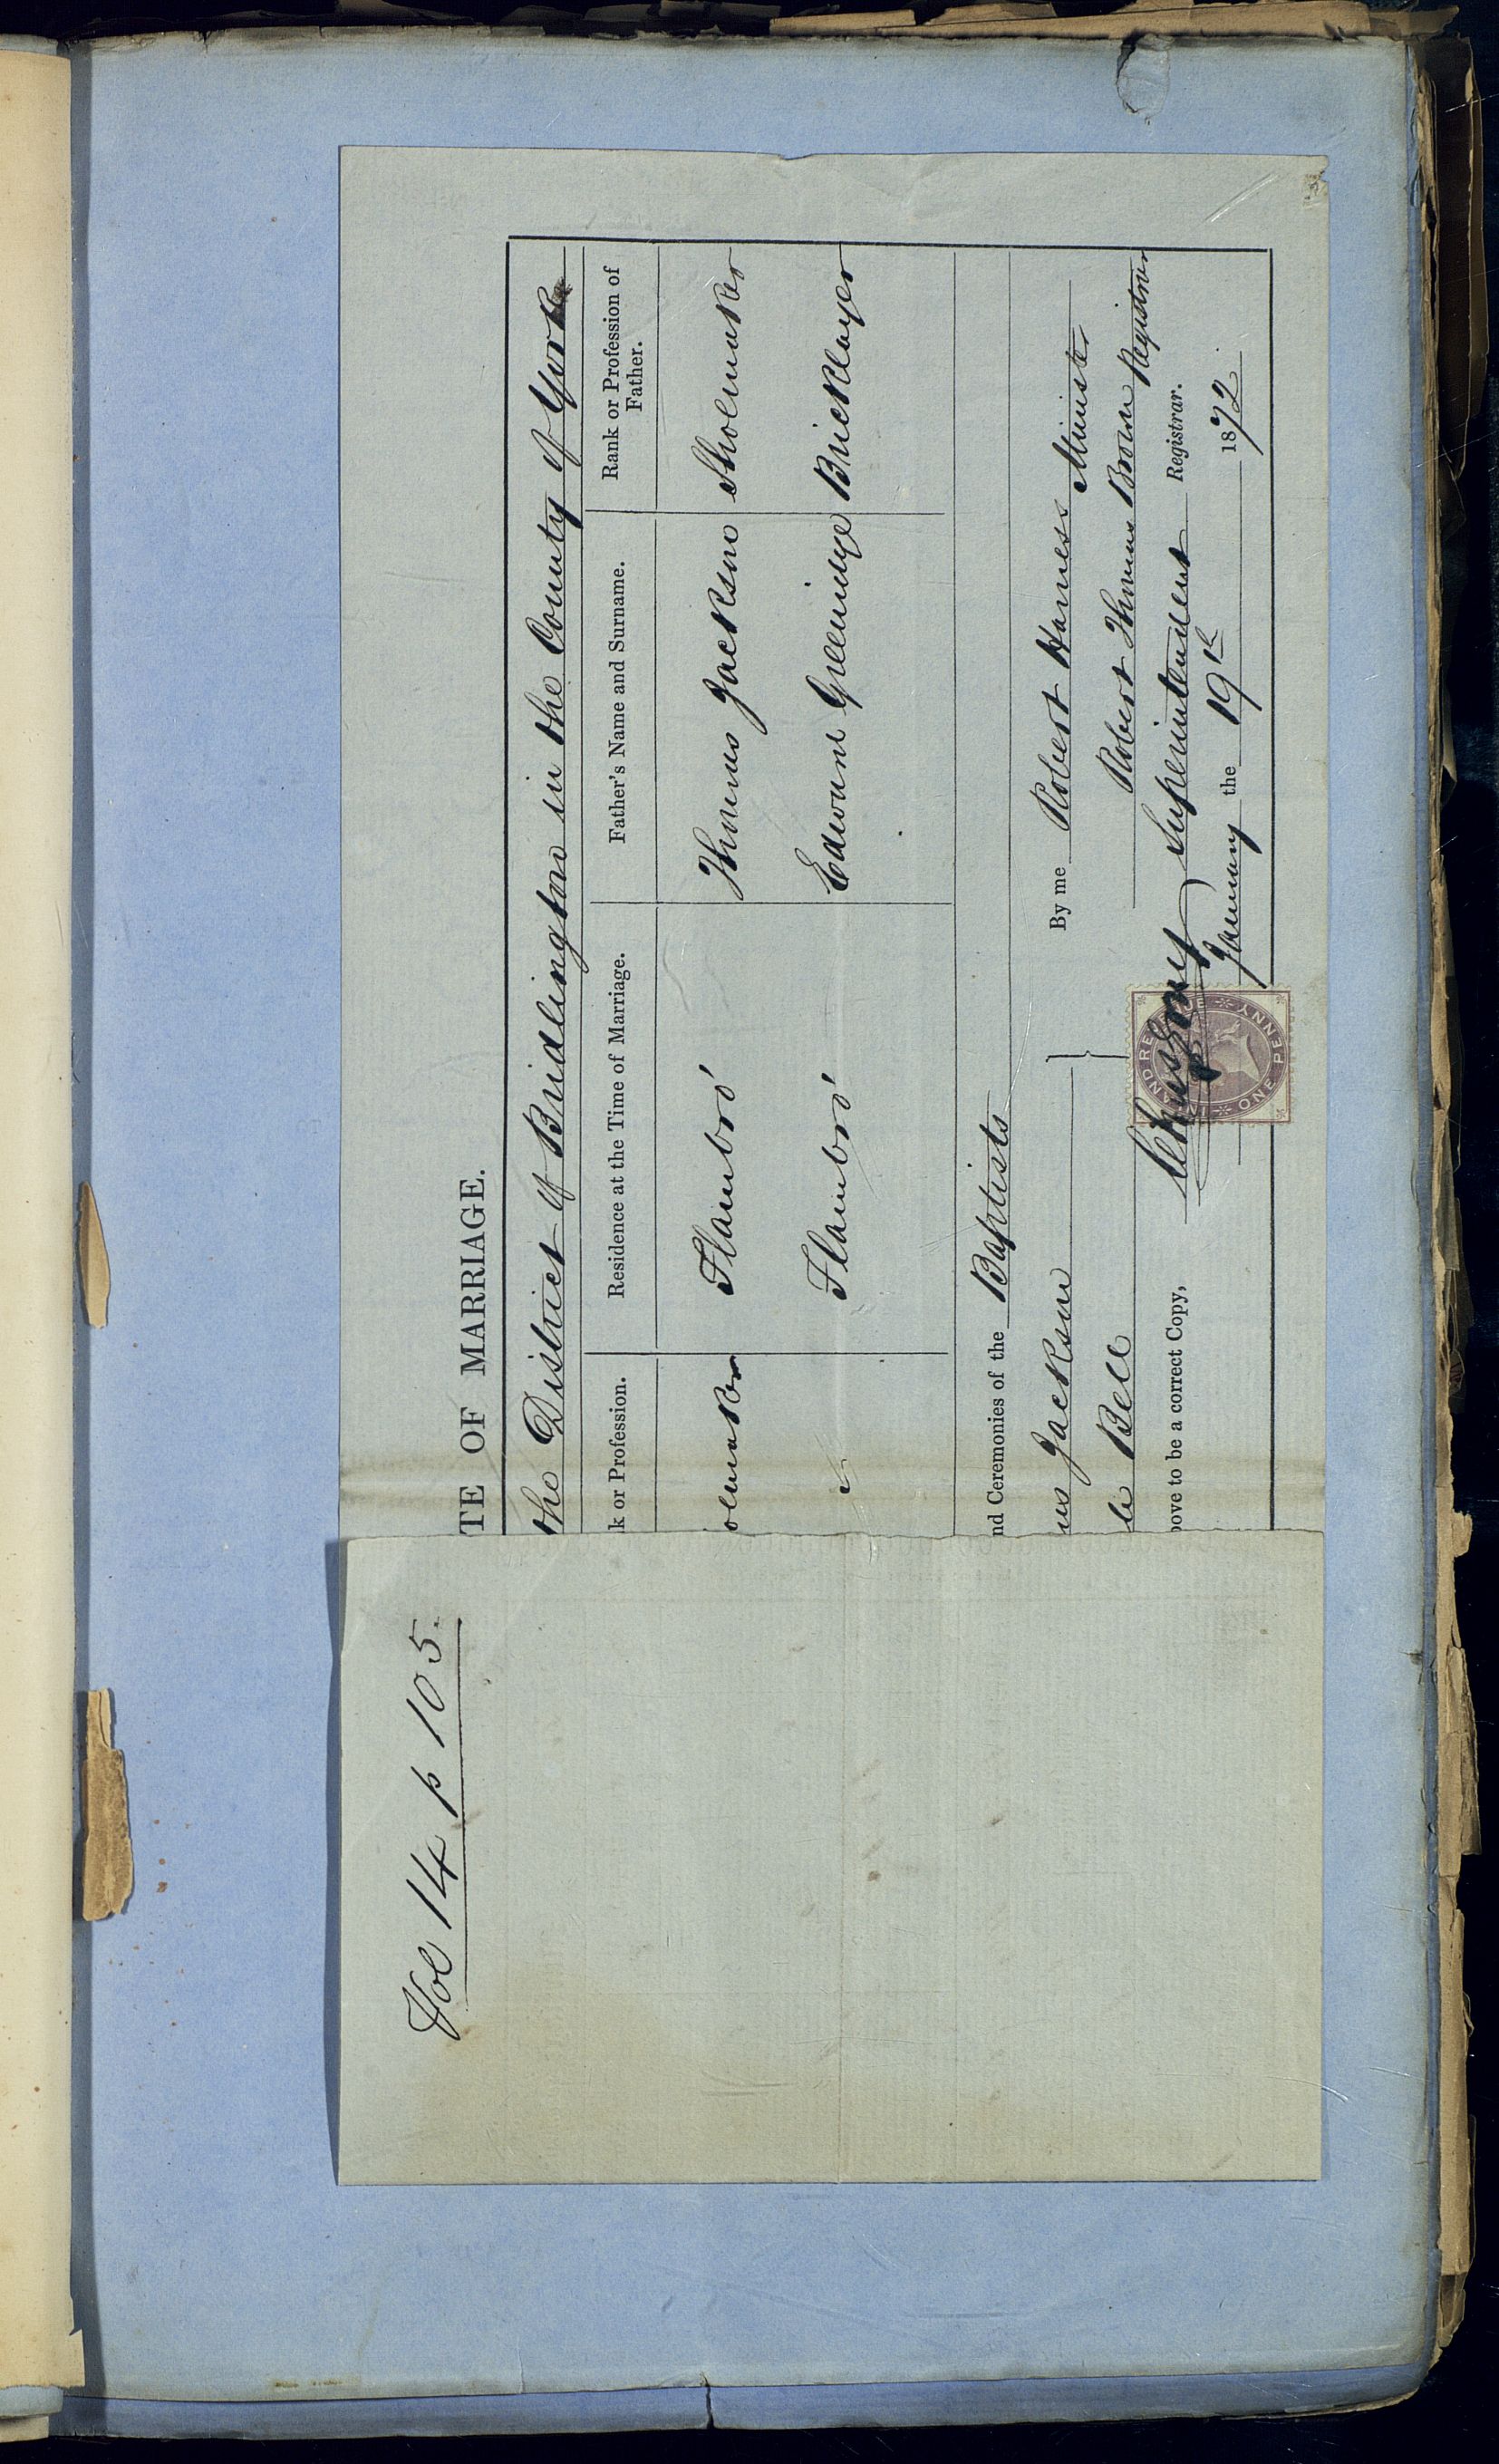 Vol 14 p 105.
TE OF MARRIAGE.
the District of Bridlington in the County of York
k or Profession. Residence at the Time of Marriage. Father's Name and Surname. Rank or Profession of Father.
oemaker Flambro' Thomas Jackson Shoemaker
Flambro' Edward Greenidge Bricklayer
nd Ceremonies of the Baptists
as Jackson By me Robert Harness Minister
Bell Robert Thomas Brown Registrar
bove to be a correct Copy, Superintendent Registrar.
January the 19th 1872.
INLAND REVENUE
ONE PENNY